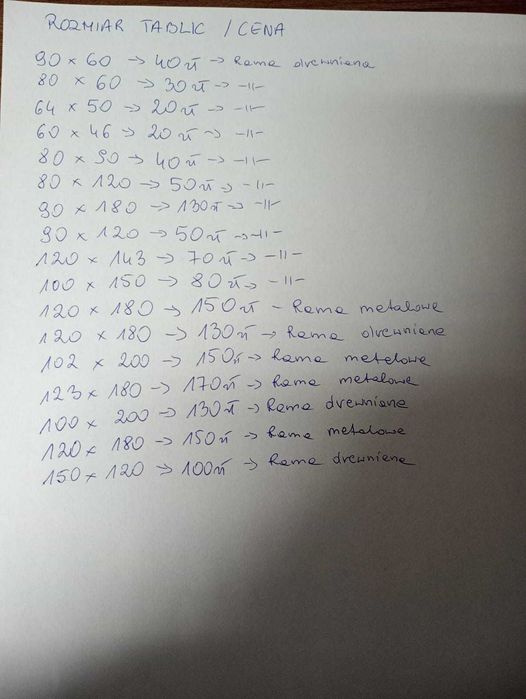 ROZMIAR TABLIC / CENA
90 × 60 → 40 zł → Rama drewniana
80 × 60 → 30 zł → -11-
64 × 50 → 20 zł → -11-
60 × 46 → 20 zł → -11-
80 × 90 → 40 zł → -11-
80 × 120 → 50 zł → -11-
90 × 180 → 130 zł → -11-
90 × 120 → 50 zł → -11-
120 × 143 → 70 zł → -11-
100 × 150 → 80 zł → -11-
120 × 180 → 150 zł - Rama metalowe
120 × 180 → 130 zł → Rama drewniane
102 × 200 → 150 zł → Rama metalowe
123 × 180 → 170 zł → Rama metalowe
100 × 200 → 130 zł → Rama drewniane
120 × 180 → 150 zł → Rama metalowe
150 × 120 → 100 zł → Rama drewniane